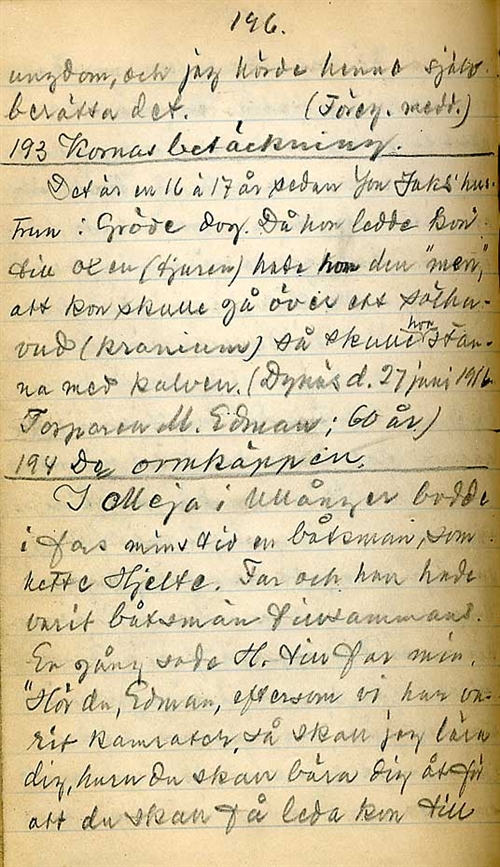 196.
ungdom, och jag hörde henne själv
berätta det. (Föreg. medd.)
193 Kornas betäckning.
Det är en 16 à 17 år sedan Jon Jaks' hus-
trun i Gröde dog. Då hon ledde kon
till oxen (tjuren) hade hon den "men,"
att kon skulle gå över ett
vud (kranium) så skulle hon stan-
na med kalven. (Dynäs d. 27 juni 1916
Torparen M. Edman; 60 år)
194 De ormkäppen.
I Meja i Ullånger bodde
i fars mins tid en båtsman, som
hette Hjelte. Far och han hade
varit båtsmän tillsammans.
En gång sade H. till far min.
"Hör du, Edman, eftersom vi har va-
rit kamrater, så skall jag lära
dig, huru du skall bära dig åt för
att du skall få leda kon till